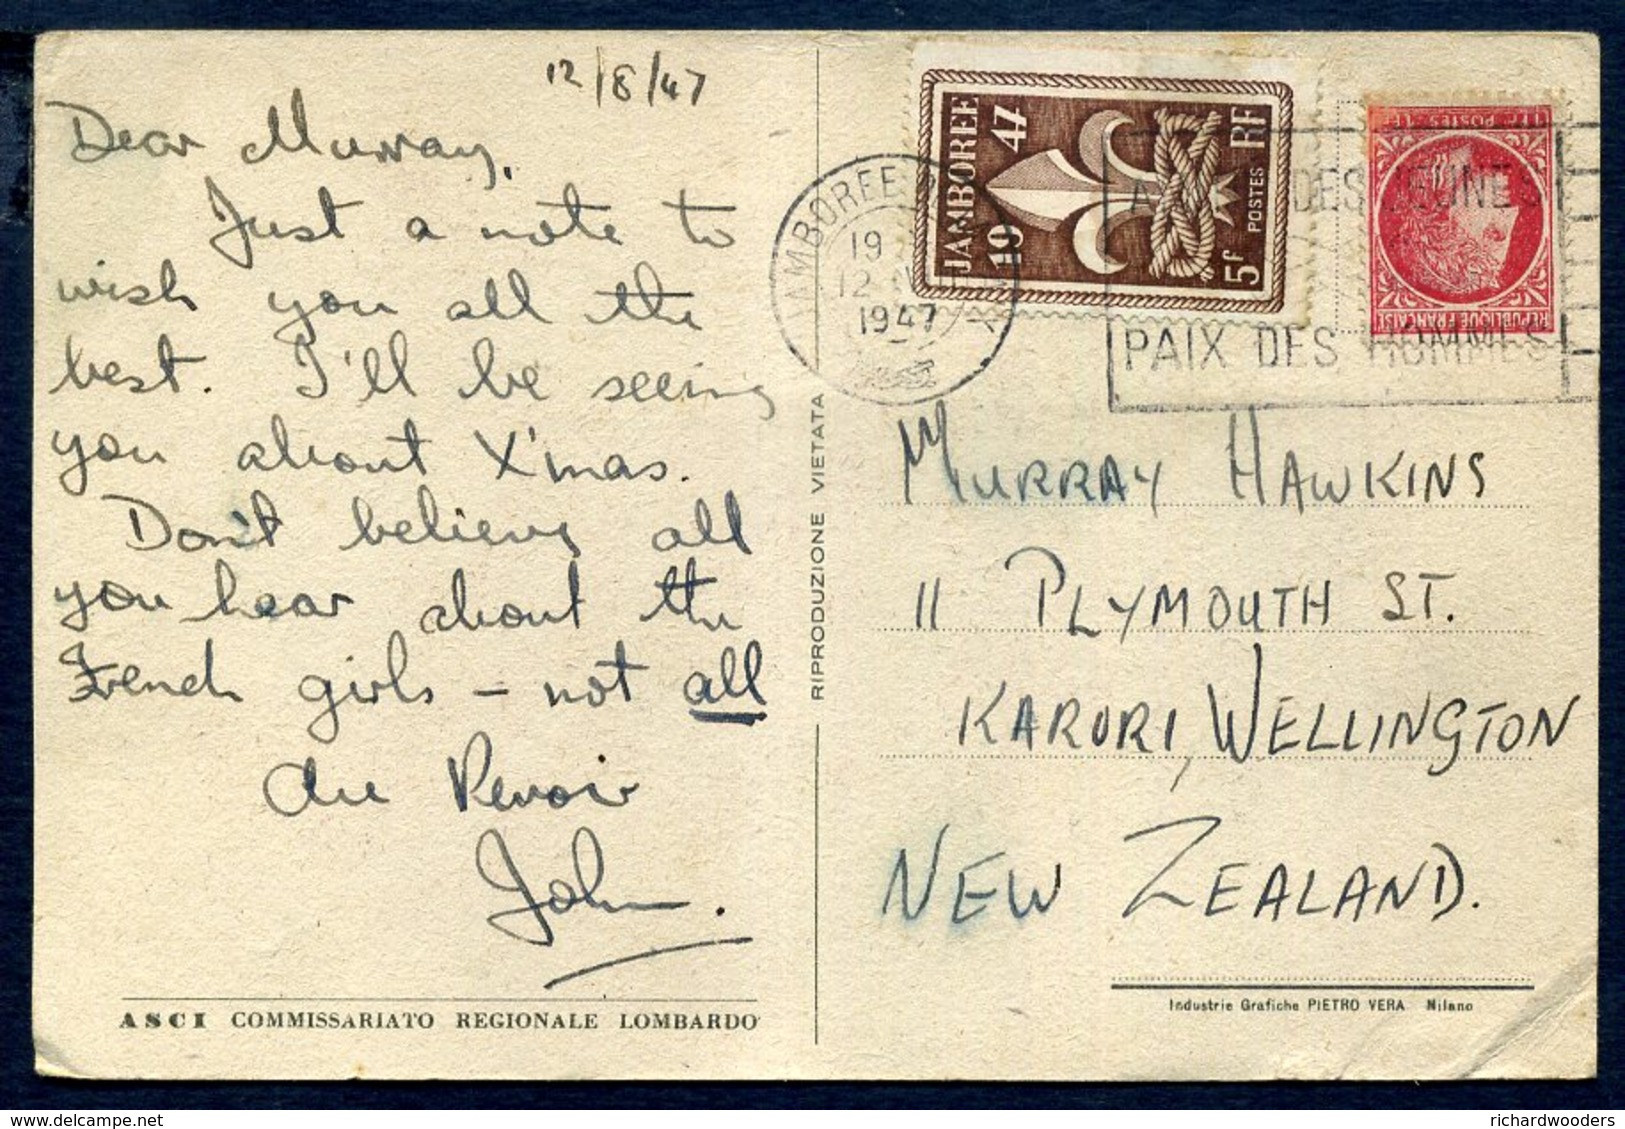 12/8/47
Dear Murray,
Just a note to
wish you all the
best. I'll be seeing
you about X'mas.
Don't believe all
you hear about the
French girls – not all
Au Revoir
John.
ASCI COMMISSARIATO REGIONALE LOMBARDO
RIPRODUZIONE VIETATA
JAMBOREE
19 47
5f POSTES RF
JAMBOREE
19
12
1947
DES JEUNES
PAIX DES HOMMES
1F POSTES 1F
REPUBLIQUE FRANÇAISE
MURRAY HAWKINS
11 PLYMOUTH ST.
KARORI, WELLINGTON
NEW ZEALAND.
Industrie Grafiche PIETRO VERA Milano
richardwooders